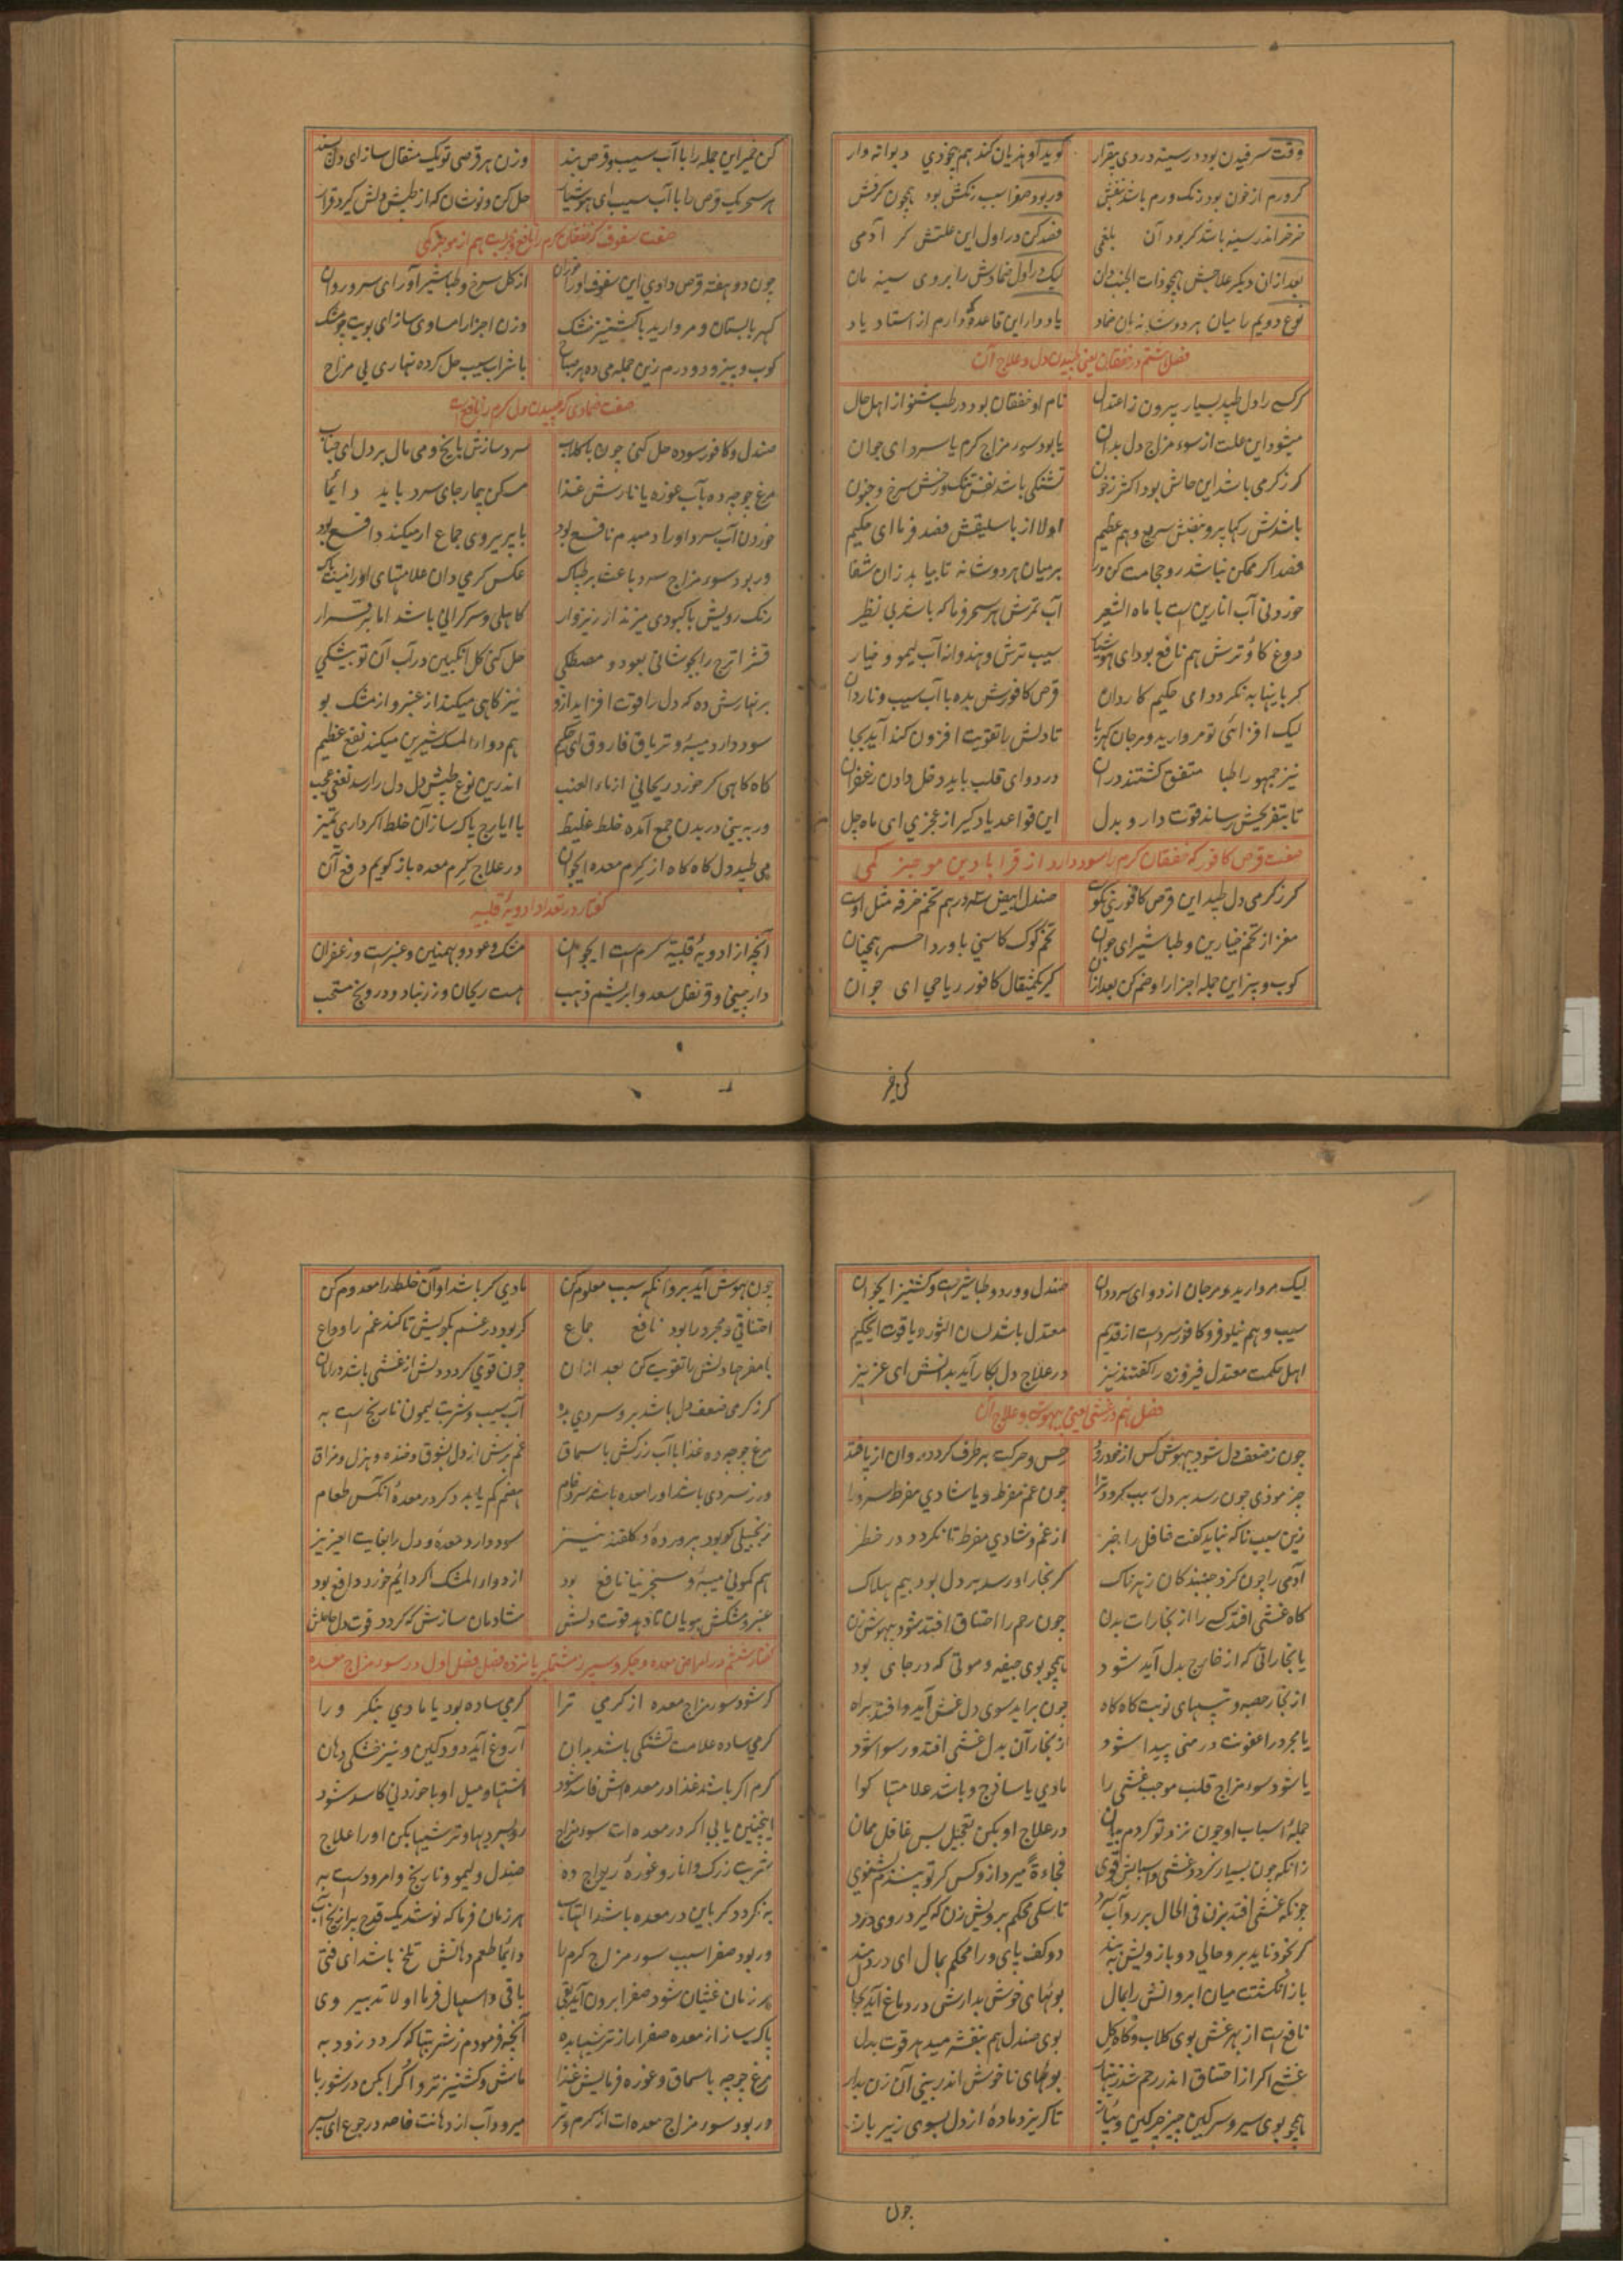 وقت سرفیدن بود در سینه دردی بیقرار گوید او هذیان کند هم بیخودی دیوانه وار
کر ورم از خون بود رنگ ورم باشد بنفش ور بود صفرا سبب رنگش بود همچون کرفش
خرخر اندر سینه باشد کر بود آن بلغمی فصد کن در اول این علتش کر آدمی
بعد ازان دیکر علاجش همچو ذات الجنب دان لیک در اول ضمادش را بروی سینه مان
نوع دویم را میان هر دوشت نه بان ضماد یاد دار این قاعده که دارم از استاد یاد
فصل هشتم در خفقان یعنی طپیدن دل و علاج آن
هرکسی را دل طپد بسیار بیرون ز اعتدال نام او خفقان بود در طب شنو از اهل حال
میشود این علت از سوء مزاج دل بدان یا بود سوء مزاج کرم یا سرد ای جوان
کر ز کرمی باشد این حالش بود اکثر ز خون تشنکی باشد نفس تنک و رخش سرخ و جنون
باشدش رکها پر و نبضش سریع و هم عظیم اولا از باسلیقش فصد فرما ای حکیم
فصد اکر ممکن نباشد رو حجامت کن ورا بر میان هر دوشت نه تا بیابد زان شفا
خوردنی آب انارین است با ماء الشعیر آب تمرش هر سحر فرما که باشد بی نظیر
دوغ کاو ترش هم نافع بود ای هوشیار سیب ترش و هندوانه آب لیمو و خیار
کر باینها به نکردد ای حکیم کاردان قرص کافورش بده با آب سیب و ناردان
لیک افزائی تو مروارید و مرجان کهربا تا دلش را تقویت افزون کند آید بجا
نیز جمهور اطبا متفق کشتند دران در دوای قلب باید دخل دادن زعفران
تا بتفریحش رساند قوت دارو بدل این قواعد یاد کیر از عجزی ای ماه چکل
صفت قرص کافور که خفقان کرم را سود دارد از قرابادین موجز کمی
کر ز کرمی دل طپد این قرص کافوری نکوست صندل ابیض سه درهم تخم خرفه مثل اوست
مغز از تخم خیارین و طباشیر ای جوان تخم کوک کاسنی با ورد احمر همچنان
کوب و بیز این جمله اجزا را و ضم کن بعد ازان کیر یکمثقال کافور ریاحی ای جوان
کن خمیر
کن خمیر این جمله را با آب سیب و قرص بند وزن هر قرصی تو یک مثقال ساز ای دل پسند
هر سحر یک قرص را با آب سیب ای هوشیار حل کن و نوشان که از طپش دلش کیرد قرار
صفت سفوف که خفقان کرم را نافع است هم از موجز کمی
چون دو هفته قرص دادی این سفوف او را خوران از کل سرخ و طباشیر آور ای سرو روان
کهربا بستان و مروارید با کشنیز خشک وزن اجزا را مساوی ساز ای بویت چو مشک
کوب و بیز و دو درم زین جمله می ده هر صباح با شراب سیب حل کرده نهاری بی مزاح
صفت ضمادی که طپیدن دل کرم را نافع است
صندل و کافور سوده حل کنی چون با کلاب سرد سازش با یخ و می مال بر دل ای جناب
مرغ چوجه ده بآب غوره یا نارش غذا مسکن بیمار جای سرد باید دائما
خوردن آب سرد او را دمبدم نافع بود با پریروی جماع ار میکند دافع بود
ور بود سوء مزاج سرد باعث بر طپاک عکس کرمی دان علامتهای او را نیست باک
رنک رویش با کبودی میزند از ریزوار کاهلی و سرکرانی باشد اما برقرار
قشر اترج را بجوشانی بعود و مصطکی حل کنی کل انکبین در آب آن تو بیشکی
بر نهارش ده که دل را قوت افزاید ازو نیز کاهی میکند از عنبر و از مشک بو
سود دارد میبه و تریاق فاروق ای حکیم هم دواء المسک شیرین میکند نفع عظیم
کاه کاهی کر خورد ریحانی از ماء العنب اندرین نوع طپش دل را رسد نفعی عجب
ور ببینی در بدن جمع آمده خلط غلیظ با ایارج پاک ساز آن خلط اکر داری تمیز
می طپد دل کاه کاه از کرم معده ایجوان در علاج کرم معده باز کویم دفع آن
کفتار در تعداد ادویه قلبیه
آنچه از ادویهٔ قلبیه کرم است ایجوان مشک و عود و بهمنین و عنبرست و زعفران
دارچینی و قرنفل سعد و ابریشم ذهب هست ریحان و زرنباد و درونج منتخب
لیک مروارید و مرجان از دوای سرد دان صندل و ورد و طباشیرست و کشنیز ایجوان
سیب و هم نیلوفر و کافور سردست از قدیم معتدل باشد لسان الثور و یاقوت ایحکیم
اهل حکمت معتدل فیروزه را کفتند نیز در علاج دل بکار آید بدانش ای عزیز
فصل نهم در غشی یعنی بیهوشی و علاج آن
چون ز ضعف دل شود بیهوش کس از خود رود حس و حرکت بر طرف کردد روان از پا فتد
چیز موذی چون رسد بر دل سبب کردد ترا چون غم مفرط و یا شادی مفرط سرورا
زین سبب ناکه نباید کفت غافل را خبر از غم و شادی مفرط تا نکردد در خطر
آدمی را چون کزد جنبندکان زهرناک کر بخار او رسد بر دل بود بیم هلاک
کاه غشی افتد کسی را از بخارات بدن چون رحم را اختناق افتد شود بیهوش زن
یا بخاراتی که از خارج بدل آید شود همچو بوی جیفه و موتی که در جای بود
از بخار حصبه و تبهای نوبت کاه کاه چون برآید سوی دل غش آید و افتد براه
یا مجرد را عفونت در منی پیدا شود از بخار آن بدل غشی افتد و رسوا شود
یا شود سوء مزاج قلب موجب غشی را مادی یا ساذج و باشد علامتها کوا
جملهٔ اسباب او چون نزد تو کردم بیان در علاج او بکن تعجیل بس غافل ممان
زانکه چون بسیار کردد غشی و اسبابش قوی فجاءةً میرد ازو کس کر تو پندم نشنوی
چونکه غشی افتد بزن فی الحال بر رو آب سرد تا سکی محکم برویش زن که کیرد روی درد
کر بخود ناید برو حالی دو بازویش ببند دو کف پای ورا محکم بمال ای دردمند
باز انکشتت میان ابروانش را بمال بوئهای خوش بدارش در دماغ آید بجا
نافع است از بهر غشی بوی کلاب و کاه کل بوی صندل هم بنفشه میدهد قوت بدل
غشی اکر از اختناق اندر رحم شد بوئهای ناخوش اندر بینی آن زن بدار
همچو بوی سیر و سرکین چیز چرکین و پیاز تا کریزد مادهٔ از دل بسوی زیر باز
چون
چون بهوش آید برو آنکه سبب معلوم کن مادی کر باشد او آن خلط را معدوم کن
اختناقی و مجرد را بود نافع جماع کر بود در غم بکویش تا کند غم را وداع
با مفرحها دلش را تقویت کن بعد ازان چون قوی کردد دلش از غشی باشد در امان
کر ز کرمی ضعف دل باشد برو سردی بده آب سیب و شربت لیمون نارنج است به
مرغ چوجه ده غذا با آب زرشک یا سماق غم برش از دل بشوق و خنده و هزل و مزاق
ور ز سردی باشد او را معده باشد سرد و خام هضم کم یابد دکر در معدهٔ آنکس طعام
زنجبیلی کو بود پرورده و کلقند نیز سود دارد معده و دل را بغایت ایعزیز
هم کمونی میبه و سنجرنیا نافع بود از دواء المسک اکر دایم خورد دافع بود
عنبر و مشکش ببویان تا دهد قوت دلش شادمان سازش که کردد قوت دل حاصلش
کفتار هشتم در امراض معده و جکر و سپرز مشتمل بر پانزده فصل فصل اول در سوء مزاج معده
کر شود سوء مزاج معده از کرمی ترا کرمی ساده بود یا مادی بنکر ورا
کرمی ساده علامت تشنکی باشد بدان آروغ آید دودکین و نیز خشکی دهان
کرم اکر باشد غذا در معده اش فاسد شود اشتها و میل او با خوردنی کاسد شود
اینچنین یابی اکر در معده ات سوء مزاج رو بسردیها و ترشیها بکن او را علاج
شربت زرک و انار و غوره ریواج ده صندل و لیمو و نارنج و امرودست به
به نکردد کر باین در معده باشد التهاب هر زمان فرما که نوشد یک قدح پر از یخ آب
ور بود صفرا سبب سوء مزاج کرم را دائما طعم دهانش تلخ باشد ای فتی
هر زمان غثیان شود صفرا برون آید بقی با قی و اسهال فرما اولا تدبیر وی
پاک ساز از معده صفرا را ز ترشیها بده آنچه فرمودم ز شربتها که کردد زود به
مرغ چوجه با سماق و غوره فرمایش غذا ماش و کشنیز تر و اکرا بکن در شوربا
ور بود سوء مزاج معده ات از کرم و تر میرود آب از دهانت خاصه در جوع ای پسر